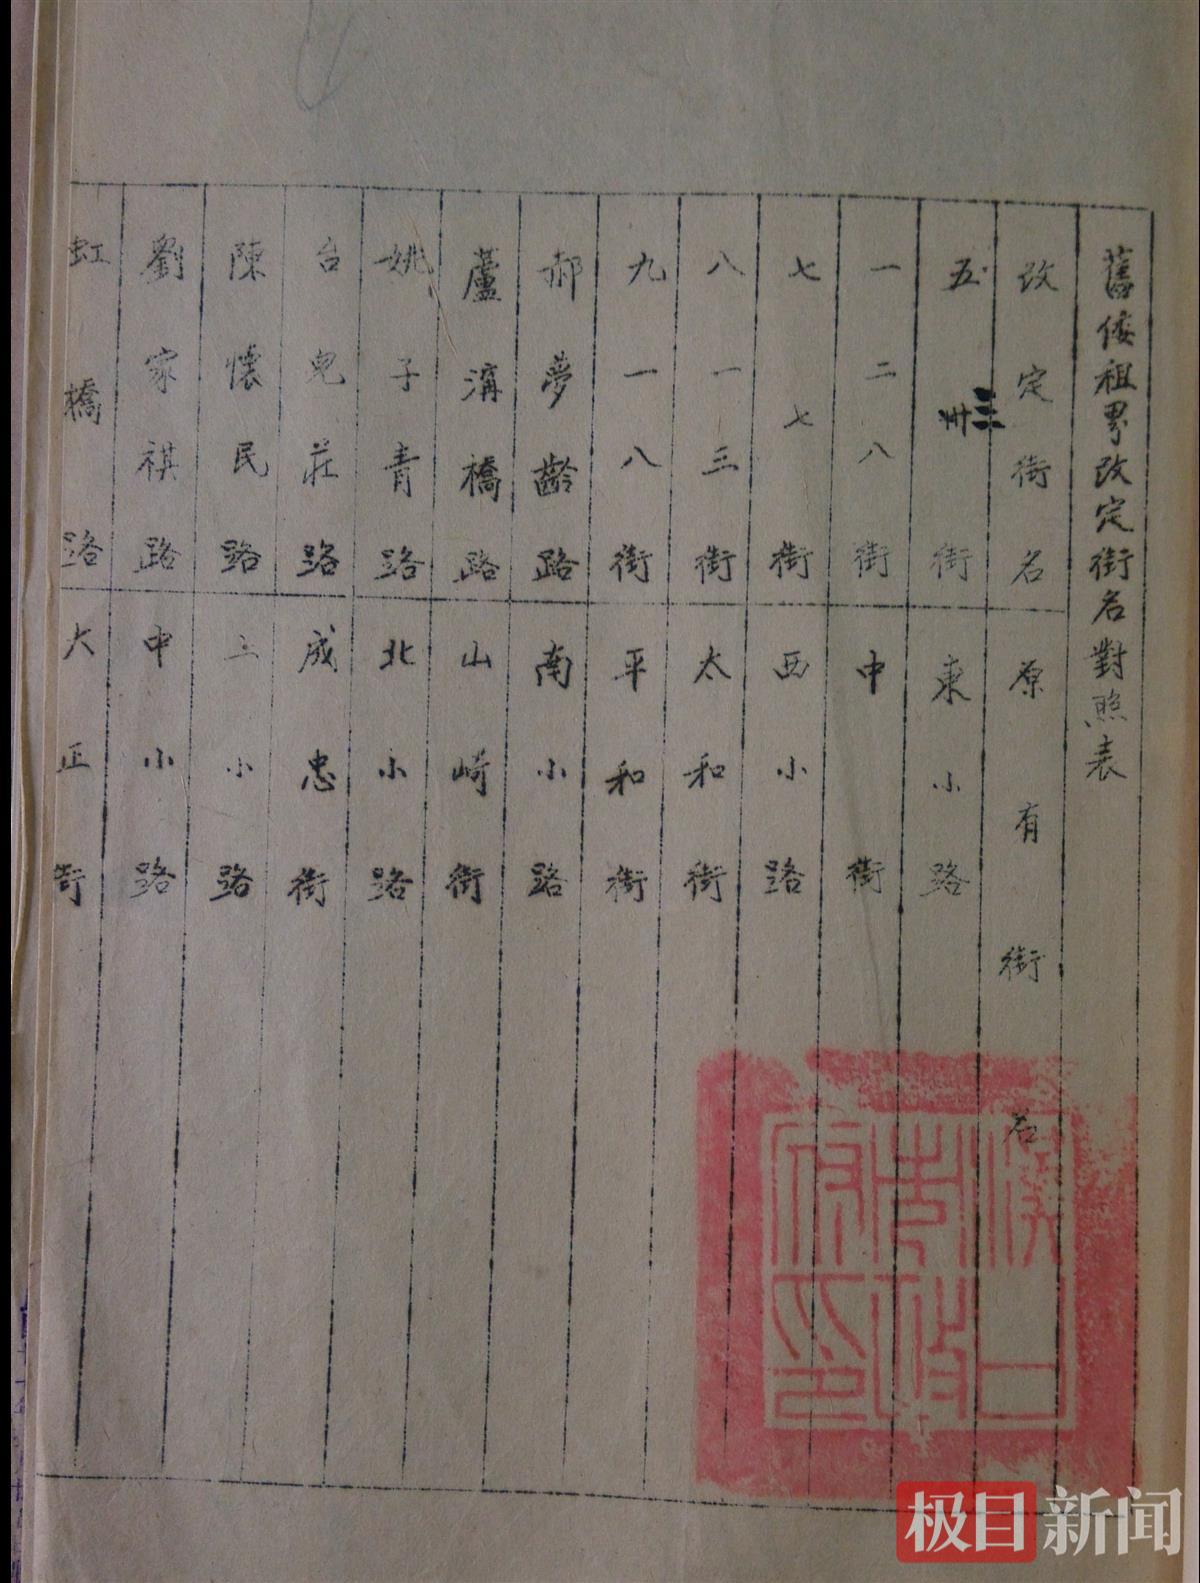 舊倭租界改定街名對照表
改定街名 原有街名
五卅三街 東小路
一二八街 中街
七七街 西小路
八一三街 太和街
九一八街 平和街
郝夢齡路 南小路
蘆溝橋路 山崎街
姚子青路 北小路
台兒莊路 成忠街
陳懷民路 上小路
劉家祺路 中小路
虹橋路 大正街
漢口
市政
府印
极目新闻